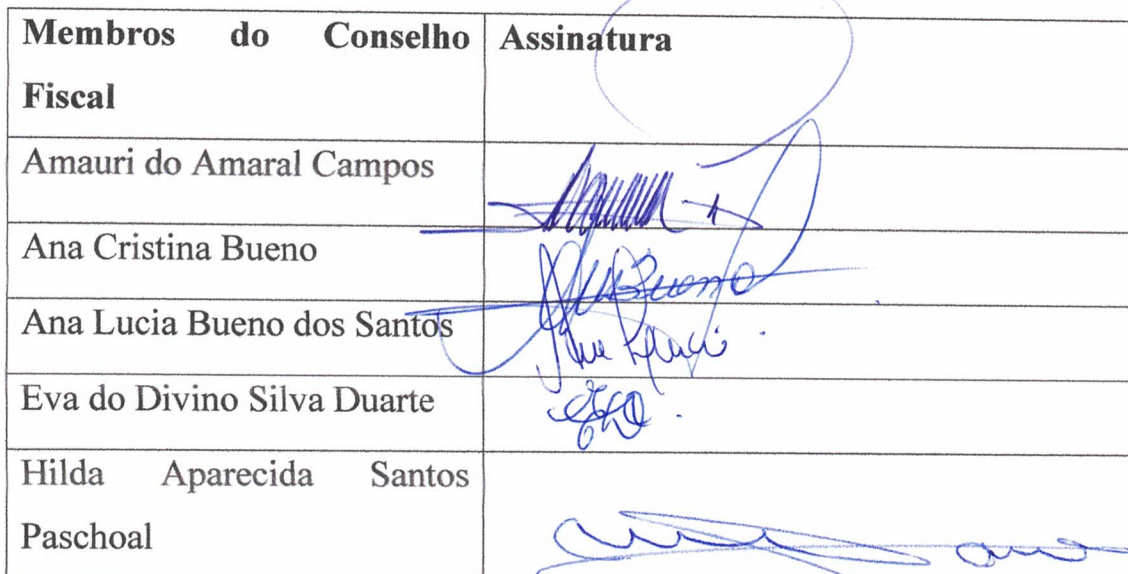 Membros do Conselho Assinatura
Fiscal
Amauri do Amaral Campos
Ana Cristina Bueno
Bueno
Ana Lucia Bueno dos Santos
Ana Lucia
Eva do Divino Silva Duarte
Hilda Aparecida Santos
Paschoal